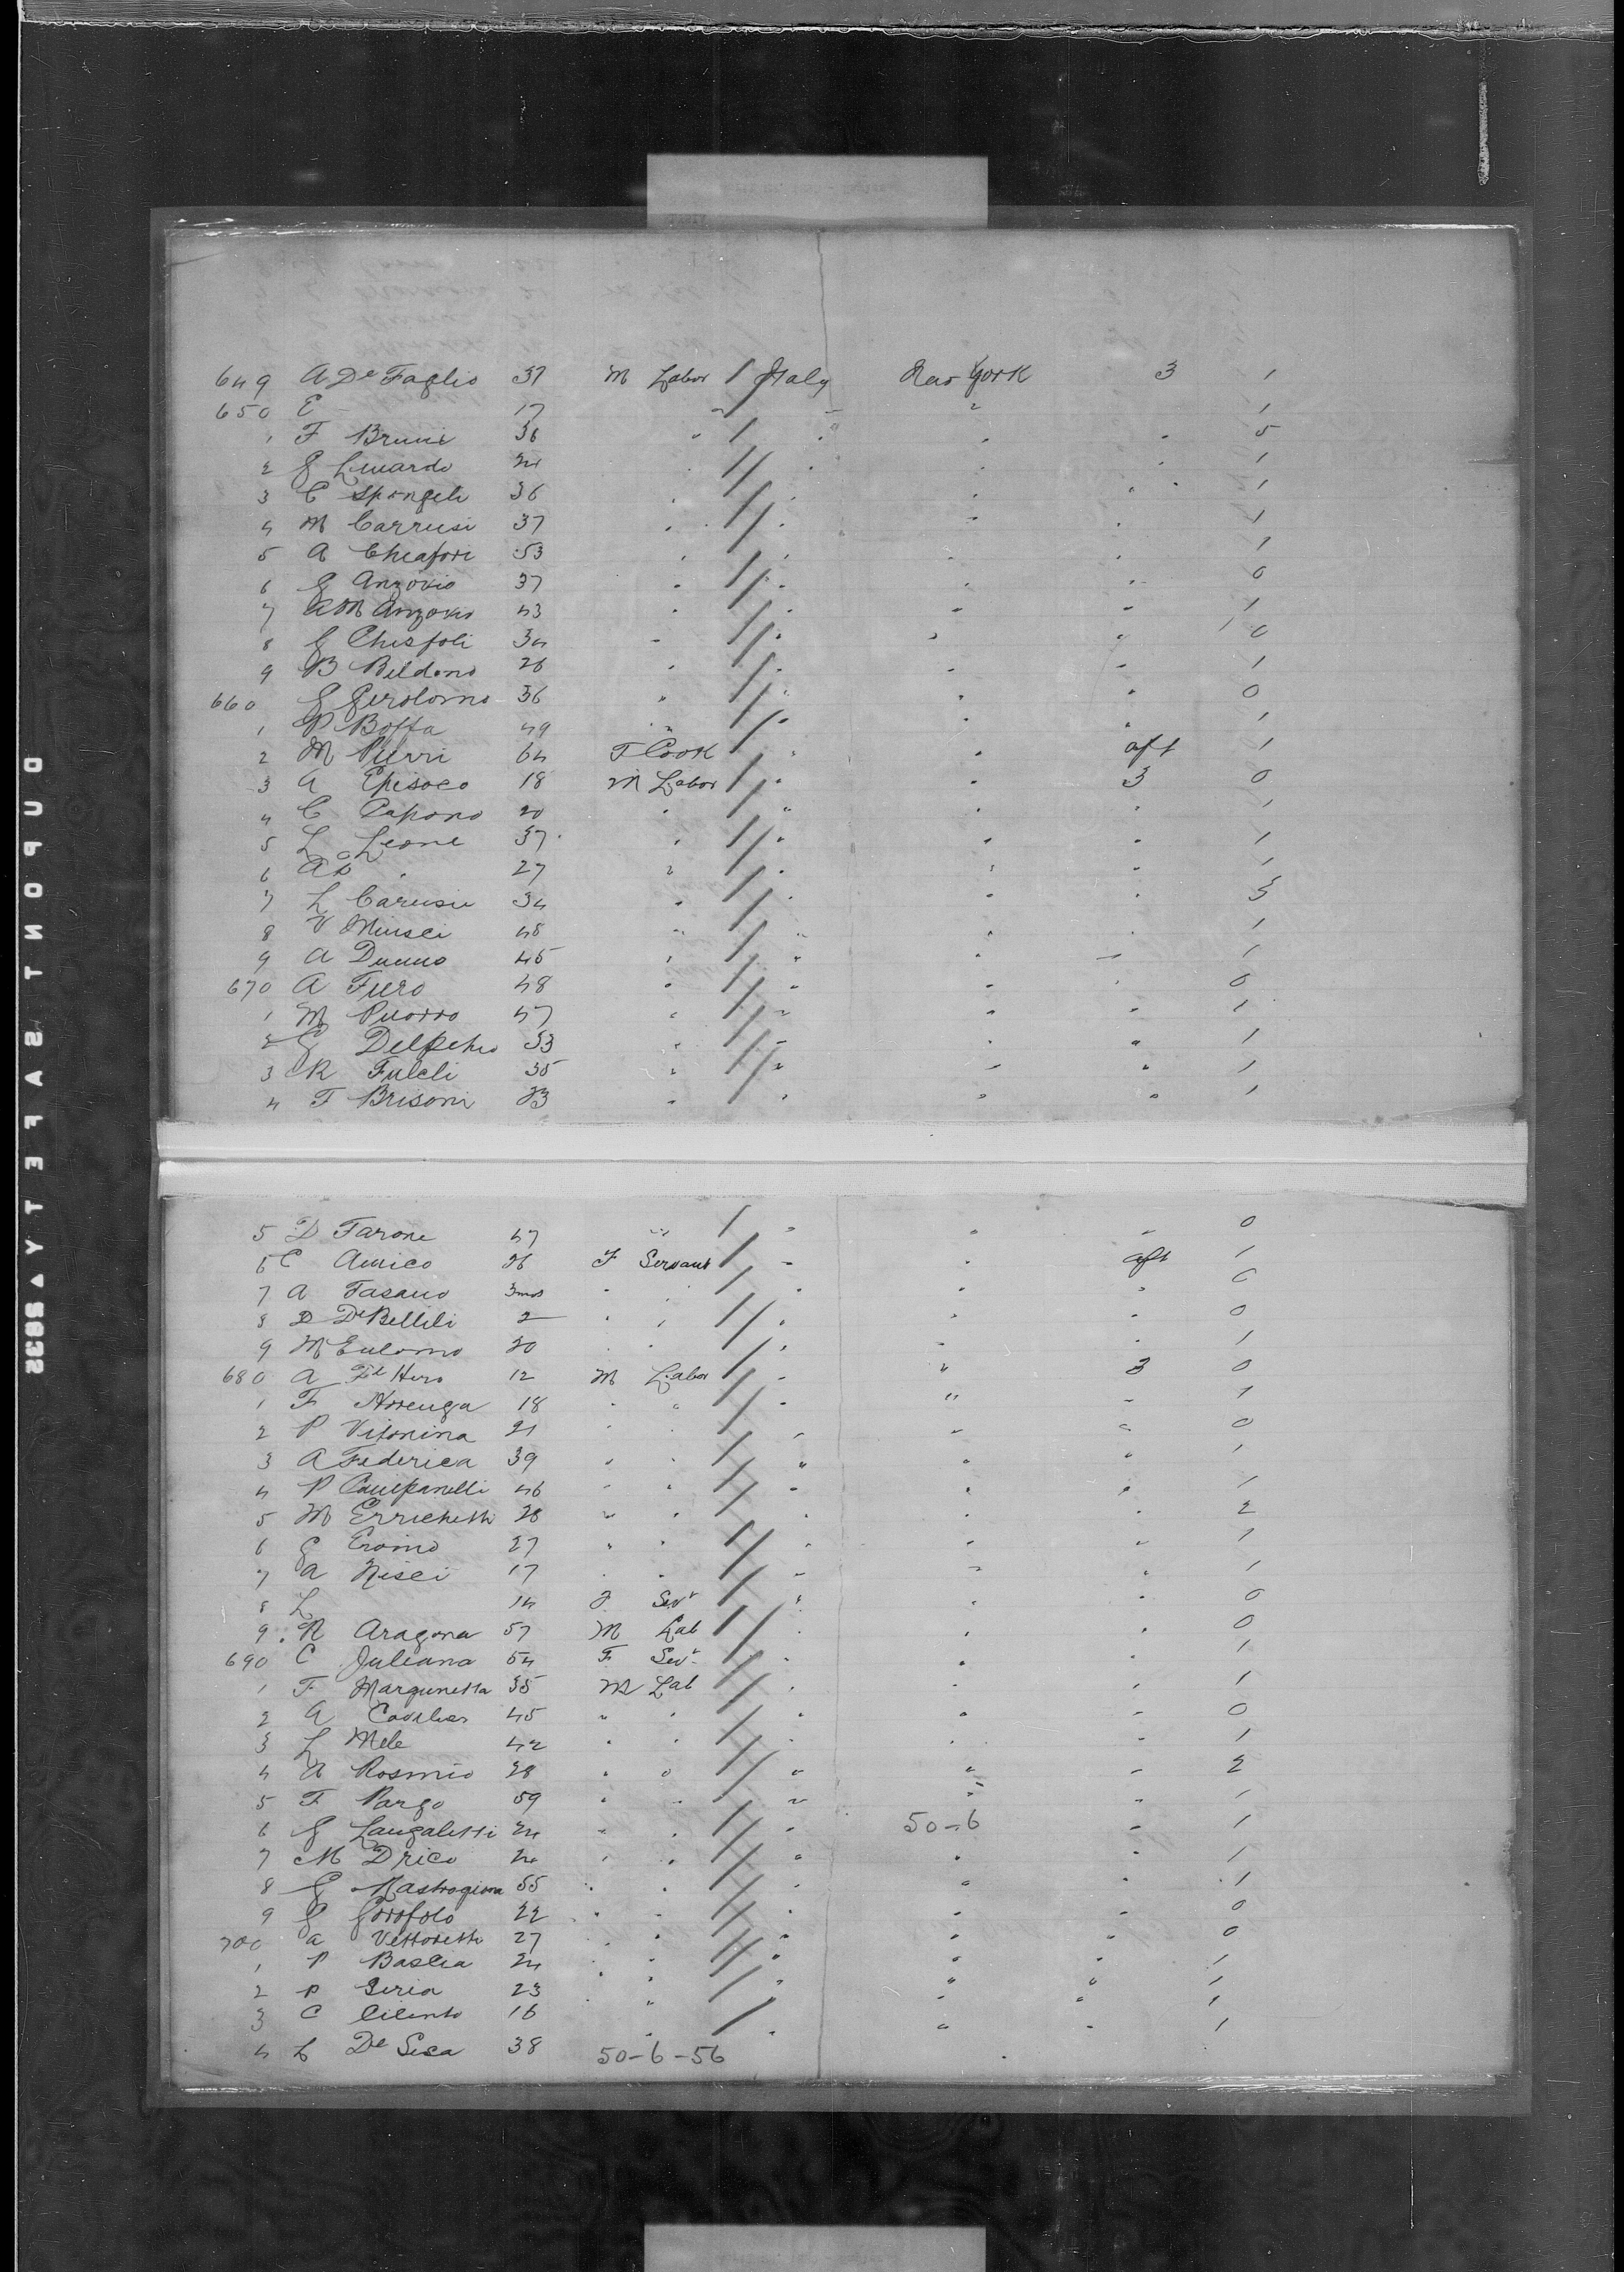 649 A De Faglio 37 M Labor / Italy New York 3 1
650 E - 17 " / " " 1
1 F Bruni 36 " / " " " 5
2 G Linardo 24 / " " " 1
3 C Spongeli 36 " / " " " 1
4 M Carrusi 37 " / " " " 1
5 A Cheafore 53 " / " " " 1
6 G Anzovio 37 " / " " " 0
7 A M Anzovio 43 " / " " " 1
8 G Chisfoli 34 " / " " " 0
9 B Beldono 26 " / " " " 1
660 G Gerolomo 36 " / " " " 0
1 P Boffa 49 " / " " " 1
2 M Purri 64 F Cook / " " aft 1
3 A Episoco 18 M Labor / " " 3 0
4 C Capono 20 " / " " " 1
5 L Leone 37 " / " " " 1
6 A " 27 " / " " " 1
7 L Carusii 34 " / " " " 3
8 V Minsci 48 " / " " " 1
9 A Duuno 45 " / " " " 1
670 A Fuero 48 " / " " " 0
1 M Puorro 47 " / " " " 1
2 G Delpetro 53 " / " " " 1
3 R Fulcli 35 " / " " " 1
4 F Brisoni 23 " / " " " 1
5 D Farone 47 " / " " " 0
6 C Amico 26 F Servant / " " aft 1
7 A Fasano 3mos " " / " " " 0
8 D De Bellili 2 " " / " " " 0
9 M Eulomo 20 " " / " " " 1
680 A Hero 12 M Labor / " " 3 0
1 F Arrenga 18 " " / " " " 1
2 P Vitonina 21 " " / " " " 0
3 A Federica 39 " " / " " " 1
4 P Campanelli 46 " " / " " " 1
5 M Errichetti 28 " " / " " " 2
6 G Eromo 27 " " / " " " 1
7 A Nisci 17 " " / " " " 1
8 L 14 F Sevt / " " " 0
9 N Aragona 57 M Lab / " " " 0
690 C Juliana 54 F Sevt / " " " 1
1 F Margunetta 35 M Lab / " " " 1
2 A 45 " " / " " " 0
3 L Mele 42 " " / " " " 1
4 A Rosmio 28 " " / " " " 2
5 F Pargo 59 " " / " " " 1
6 G Langaletti 24 " " / " 50-6 " 1
7 M Drico 24 " " / " " " 1
8 G Mastrogiova 55 " " / " " " 1
9 G Gorofolo 22 " " / " " " 0
700 a Vettoretti 27 " " / " " " 0
1 P Baslia 24 " " / " " " 1
2 P Seria 23 " " / " " " 1
3 C Cilento 16 " " / " " " 1
4 L De Sica 38 " / " " " 1
50-6-56
DUPONT SAFETY ▲ 8832